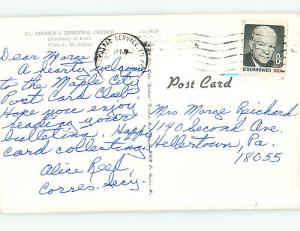 ST. ANDREW'S EPISCOPAL CHURCH
Broadway at
Flint 6, Michigan
Dear Marge
A hearty welcome
to the Maple City
Post Card Club.
Hope you enjoy
reading your
bulletins. Happy
card collecting,
Alice Reef
Corres. Secy
POSTAL SERVICE
PM
EISENHOWER USA
8¢
Post Card
Mrs Marge Reichard
1140 Second Ave.
Hellertown, Pa.
18055